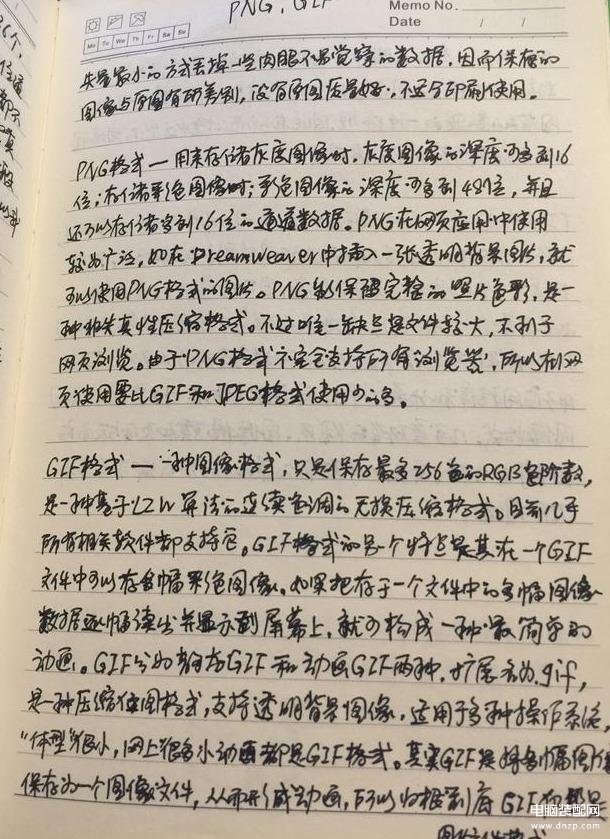 PNG, GIF
Memo No.
Date / /
Mo Tu We Th Fr Sa Su
失量最小的方式丢掉一些肉眼不易觉察的数据，因而保存的
图像与原图有所差别，没有原图质量好，不适合印刷使用。
PNG格式一用来存储灰度图像时，灰度图像的深度可多到16
位；存储彩色图像时；彩色图像的深度可多到48位，并且
还可以存储多到16位的通道数据。PNG在网页应用中使用
较为广泛，如在Dreamweaver中插入一张透明背景图片，就
可以使用PNG格式的图片。PNG能保留完整的照片色彩，是一
种非失真性压缩格式。不过唯一缺点是文件较大，不利于
网页浏览。由于PNG格式不完全支持所有浏览器，所以在网
页使用要比GIF和JPEG格式使用少的多。
GIF格式一一种图像格式，只是保存最多256色的RGB色阶数，
是一种基于LZW算法的连续色调的无损压缩格式。目前几乎
所有相关软件都支持它。GIF格式的另个特点是其在一个GIF
文件中可以存多幅彩色图像。如果把存于一个文件中的多幅图像
数据逐幅读出并显示到屏幕上，就可构成一种最简单的
动画。GIF分为静态GIF和动画GIF两种，扩展名为.gif，
是一种压缩位图格式，支持透明背景图像，适用于多种操作系统，
“体型”很小，网上很多小动画都是GIF格式。其实GIF是将多幅图像
保存为一个图像文件，从而形成动画，所以归根到底GIF仍然是
图像文件格式
电脑装配网
www.dnzp.com